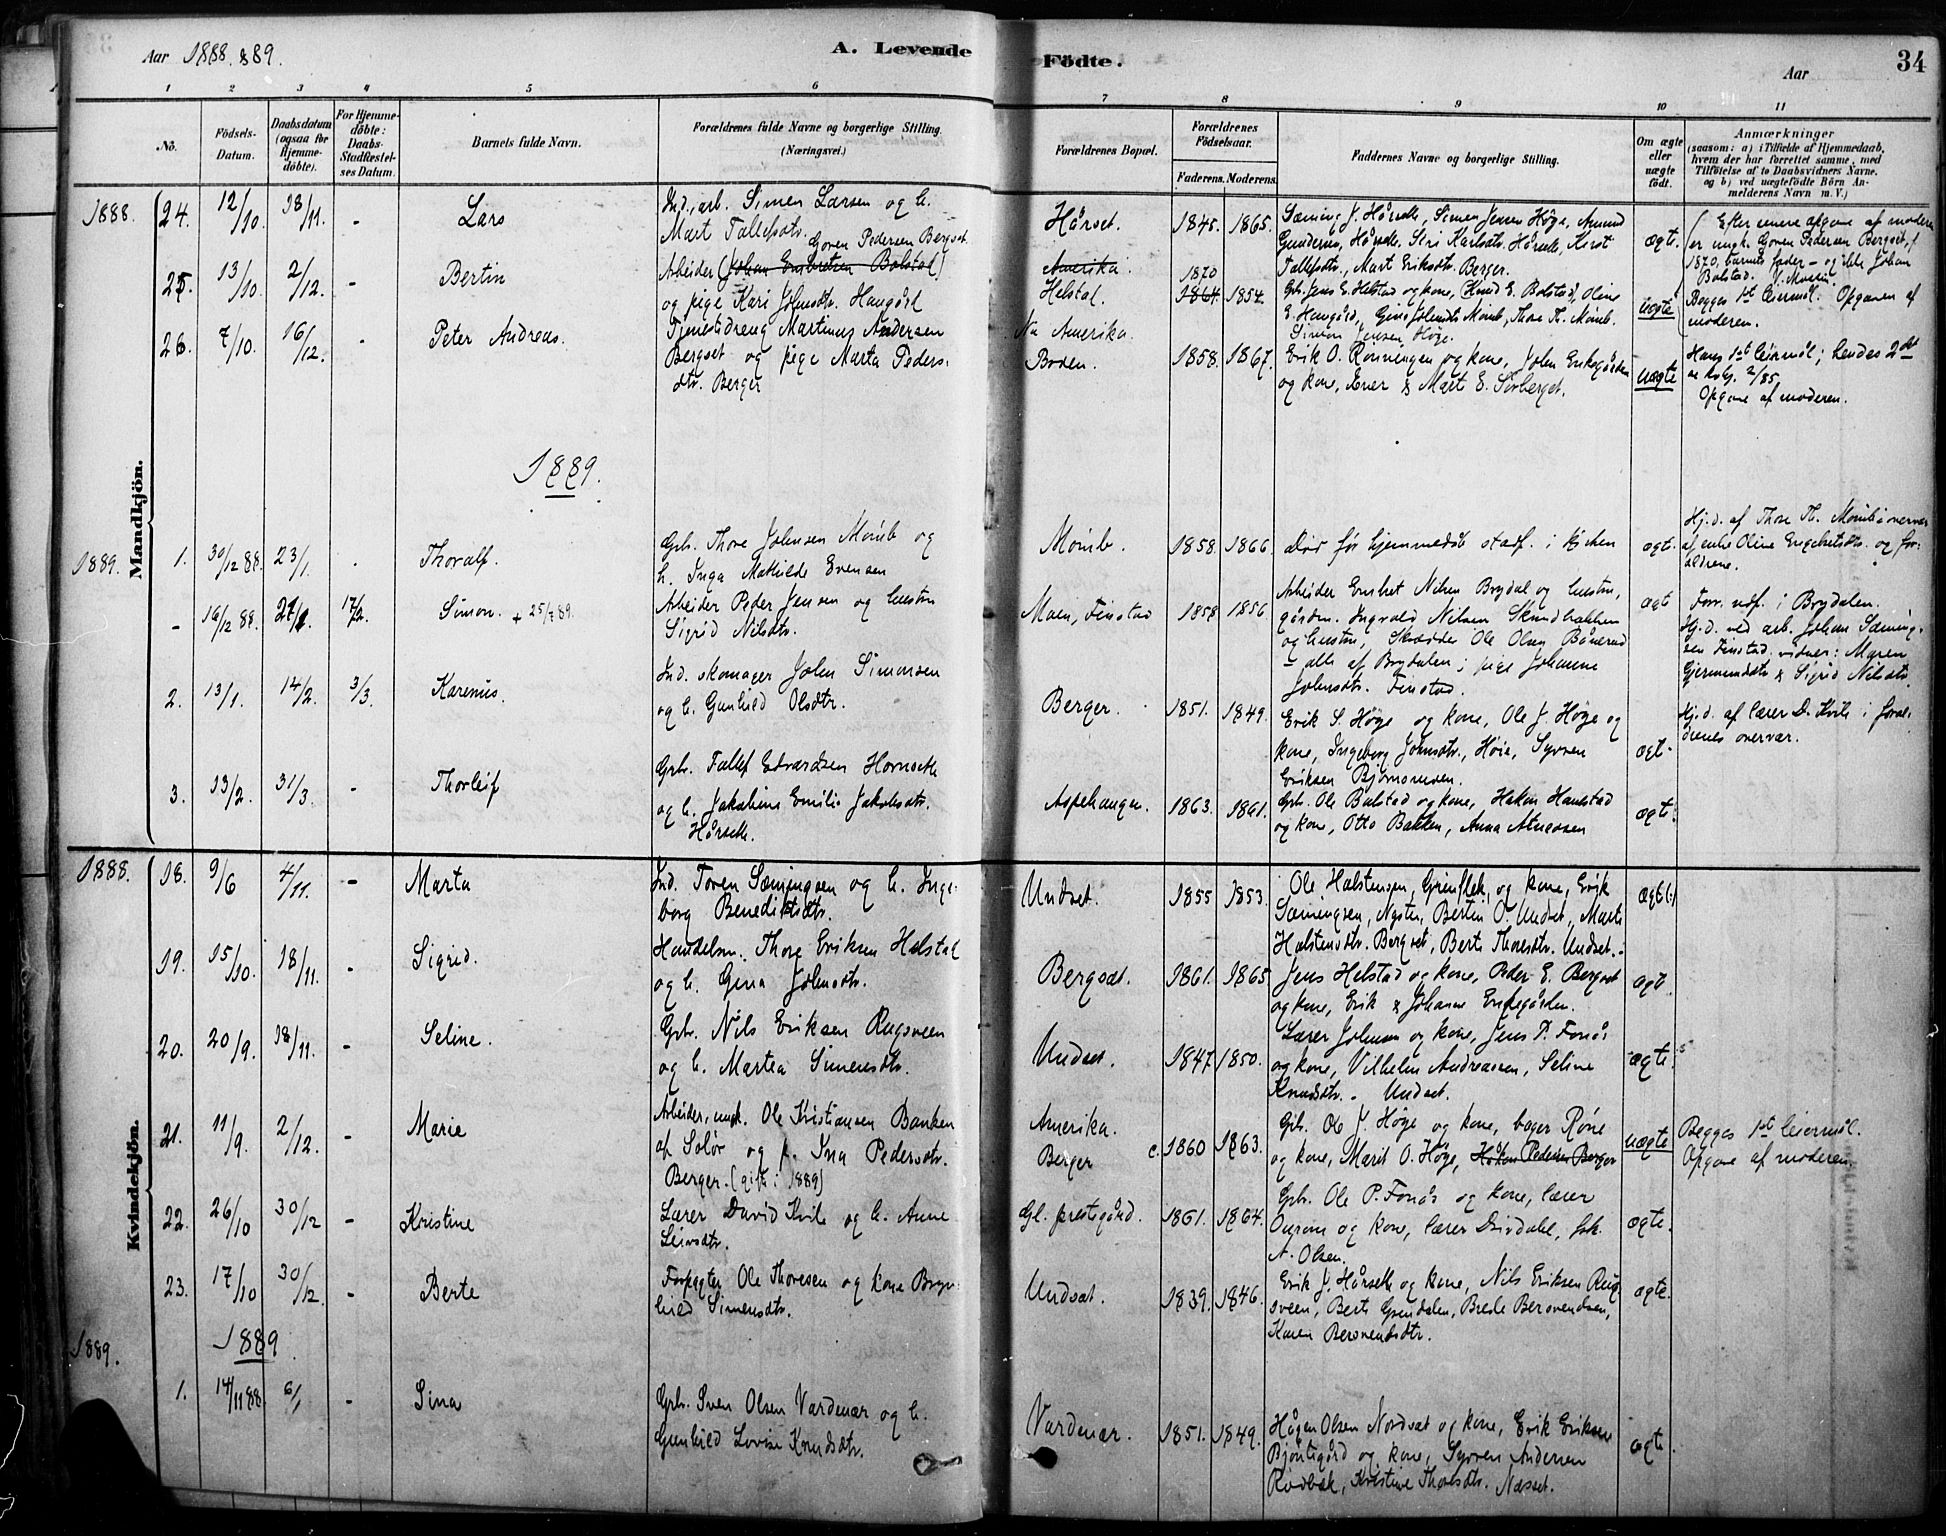 Aar 1888 & 89.
A. Levende
Födte.
Aar
34
1 2 3 4 5 6 7 8 9 10 11
No.
Födsels-
Datum.
Daabsdatum
(ogsaa for
Hjemme-
döbte).
For Hjemme-
döbte:
Daabs-
Stadfæstel-
ses Datum.
Barnets fulde Navn.
Forældrenes fulde Navne og borgerlige Stilling.
(Næringsvei.)
Forældrenes Bopæl.
Forældrenes
Födselsaar.
Faderens. Moderens.
Faddernes Navne og borgerlige Stilling.
Om ægte
eller
uægte
födt.
Anmærkninger
(saasom: a) i Tilfælde af Hjemmedaab,
hvem der har forrettet samme, med
Tilföielse af to Daabsvidners Navne,
og b) ved uægtefödte Börn An-
melderens Navn m.V.)
Mandkjön.
1888. 24. 12/10. 18/11. - Lars
Ind., arb. Simen Larsen og h.
Mart Tallefsdtr.
Hårset. 1845. 1865.
Sæming J. Hårseth, Simen Jensen Høge, Amund
Gundersen, Hårseth, Siri Karlsdtr. Hårseth, Kirst
Tallefsdtr., Mart Eriksdtr. Berger.
ægte.
Efter senere opgave af moderen
er ungk. Goren Pedersen Bergset, f.
1870, barnets fader - og ikke Johan
Bolstad.
25. 13/10. 2/12. - Bertin
Goren Pedersen Bergset
Arbeider (Johan Embretsen Bolstad)
og pige Kari Johnsdtr. Haugård
Amerika.
Helstad. 1870 1864. 1854.
Grb. Jens E. Helstad og kone, Knud E. Bolstad, Oline
E. Haugård, Gina Johnsdtr. Momb, Thore Th. Momb.
Simon Jensen Høge.
uægte
Begges 1st leiermål. Opgaven af
moderen.
26. 7/10. 16/12. - Peter Andreas.
Tjenestedreng Martinus Andersen
Bergset og pige Marta Peders-
dtr. Berger
Nu Amerika.
Broen. 1858. 1867.
Erik O. Rønningen og kone, John Enkegården
og kone, Ener & Mart E. Sørberget.
uægte
Hans 1st leiermål; hendes 2det
Opgave af moderen.
1889.
1889. 1. 30/12 88. 23/1. . Thoralf.
Grb. Thore Johnsen Momb og
h. Inga Mathilde Evensen
Momb. 1858. 1866.
død før hjemmedåb stadf. i kirken
ægte.
Hj.d. af Thore Th. Momb i overvær
af enke Oline Engebretsdtr. og for-
ældrene.
- 16/12 88. 27/1. 17/2. Simon. + 25/7 89.
Arbeider Peder Jensen og hustru
Sigrid Nilsdtr.
Moen, Finstad 1858 1856
Arbeider Embret Nilsen Brydal og hustru,
gårdm. Ingvald Nilsen Skundbakken
og hustru, Skrædder Ole Olsen
- alle af Brydalen; pige Johanne
Johnsdtr. Finstad.
ægte
Forr. udf. i Brydalen.
Hj.d. ved arb. Johan Sæming-
sen Finstad. vidner: Maren
Gjermundsdtr. & Sigrid Nilsdtr.
2. 13/1. 14/2. 3/3. Karenus.
Ind. skomager John Simonsen
og h. Gunhild Olsdtr.
Berger. 1851. 1849.
Erik S. Høge og kone, Ole J. Høge og
kone, Ingeborg Johnsdtr., Høie, Syver
Eriksen Bjørnsmoen.
ægte
Hj.d. af lærer D. Kvile i foræl-
drenes overvær.
3. 13/2. 31/3. - Thorleif
Grb. Tallef Edvardsen Hornseth
og h. Jakobine Emilie Jakobsdtr.
Hårseth.
Aspehaugen. 1863. 1861.
Grb. Ole Bolstad og kone, Hakon Haustad
og kone, Otto Bakken, Anna
ægte.
Kvindekjön.
1888. 18. 9/6 4/11. - Marta
Ind. Toren Sæmingsen og h. Inge-
borg Benediktsdtr.
Undset. 1855 1853.
Ole Halstensen, Grinflek, og kone, Erik
Sæmingsen, Nysten, Bertin O. Undset, Marte
Halstensdtr. Bergset, Berte Thoresdtr. Undset.
ægte
19. 15/10. 18/11. - Sigrid.
Handelsm. Thore Eriksen Helstad
og h. Gina Johnsdtr.
Bergset. 1861. 1865
Jens Helstad og kone, Peder E. Bergset
og kone, Erik & Johanne Enkegården.
ægte
20. 20/9. 18/11. - Seline.
Grb. Nils Eriksen Rugsveen
og h. Martea Simensdtr.
Undset. 1847. 1850.
Lærer Johnsen og kone, Jens P. Fonås
og kone, Vilhelm Andreassen, Seline
Knudsdtr. Undset.
ægte.
21. 11/9. 2/12. - Marie
Arbeider, ungk. Ole Kristiansen Banken
af Solør og p. Ina Pedersdtr.
Berger. (gift i 1889)
Amerika.
Berger c. 1860 1863.
Grb. Ole J. Høge og kone, bager Røne
og kone, Marit O. Høge, Håkon Pedersen Berger
uægte
Begges 1st leiermål.
Opgave af moderen
22. 26/10 30/12 - Kristine
Lærer David Kvile og h. Anne
Gl. prestegård. 1861. 1864.
Grb. Ole P. Fonås og kone, lærer
og kone, lærer Drivdahl,
A. Olsen.
ægte.
23. 17/10 30/12. - Berte
Forpagter Ole Thoresen og kone Bryn-
hild Simensdtr.
Undset. 1839. 1846.
Erik J. Hårseth og kone, Nils Eriksen Rug-
sveen, Berte Grindalen, Brede Berovendsen,
Karen Berovendsdtr.
ægte.
1889
1889. 1. 14/11 88. 6/1 - Sina
Grb. Sven Olsen Vardenær og h.
Gunhild Lovise Knudsdtr.
Vardenær. 1851. 1849.
Hågen Olsen Nordset og kone, Erik Eriksen
Bjøntegård og kone, Syver Andersen
Rødbæk, Kristine Thoresdtr. Næsset.
ægte